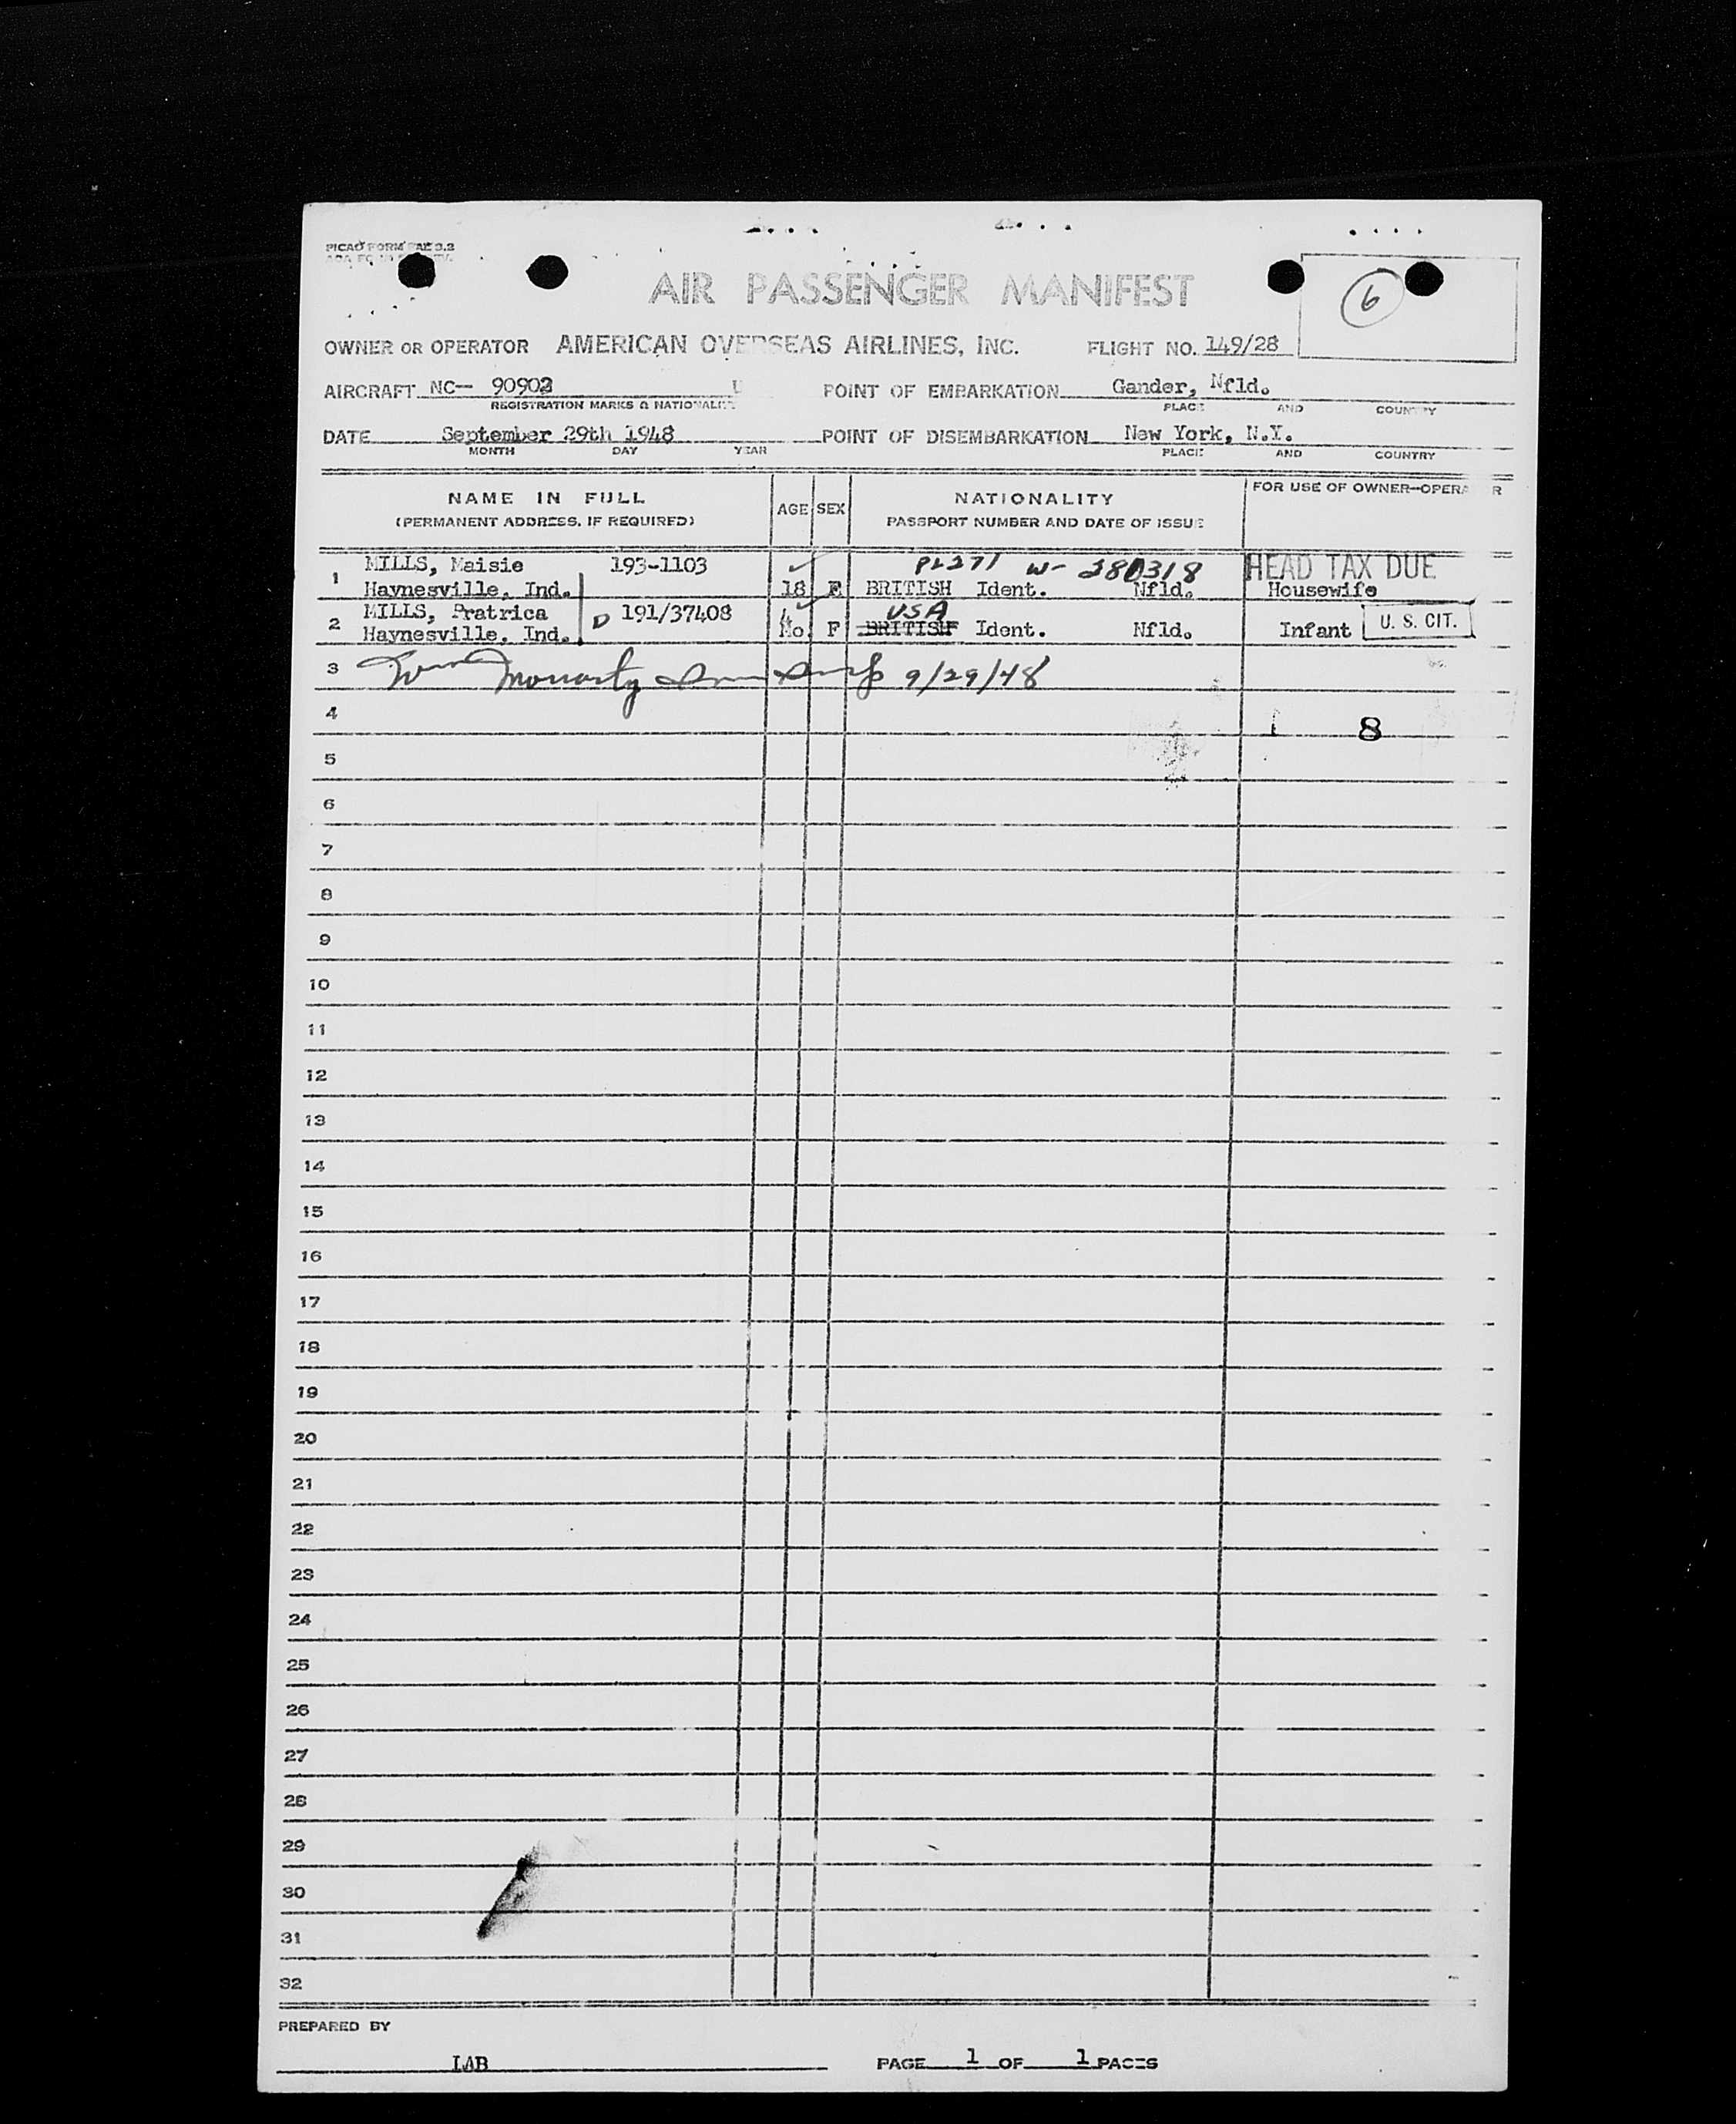 PICAO FORM PAE 9.2
AIR PASSENGER MANIFEST
6
OWNER OR OPERATOR AMERICAN OVERSEAS AIRLINES, INC. FLIGHT NO. 149/28
AIRCRAFT NC- 90902 POINT OF EMBARKATION Gander, Nfld.
REGISTRATION MARKS & NATIONALITY PLACE AND COUNTRY
DATE September 29th 1948 POINT OF DISEMBARKATION New York, N.Y.
MONTH DAY YEAR PLACE AND COUNTRY
NAME IN FULL AGE SEX NATIONALITY FOR USE OF OWNER-OPERATOR
(PERMANENT ADDRESS, IF REQUIRED) PASSPORT NUMBER AND DATE OF ISSUE
MILLS, Maisie 193-1103 PL271 W- 380318 HEAD TAX DUE
1 Haynesville, Ind. 18 F BRITISH Ident. Nfld. Housewife
MILLS, Pratrica D 191/37408 USA
2 Haynesville, Ind. Mo. F BRITISH Ident. Nfld. Infant U. S. CIT.
3 Moriarty 9/29/48
4 8
5
6
7
8
9
10
11
12
13
14
15
16
17
18
19
20
21
22
23
24
25
26
27
28
29
30
31
32
PREPARED BY
IAB PAGE 1 OF 1 PAGES